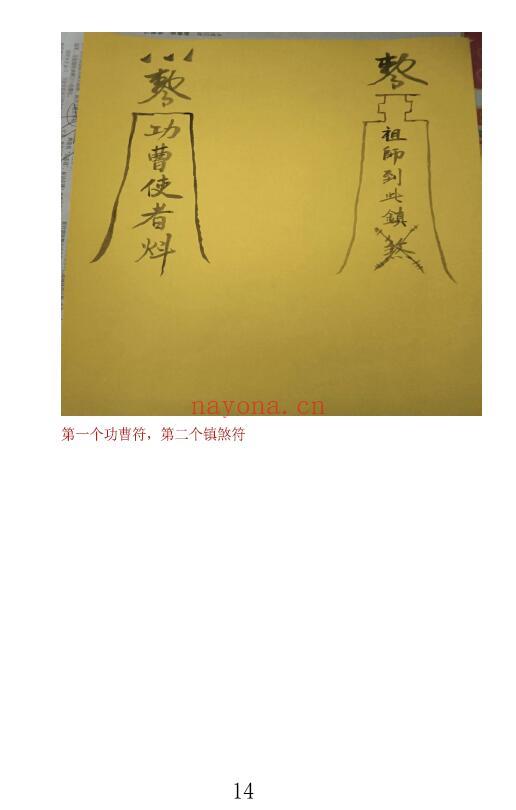 敕
功曹使者炓
敕
祖師到此鎮煞
nayona.cn
第一个功曹符，第二个镇煞符
14